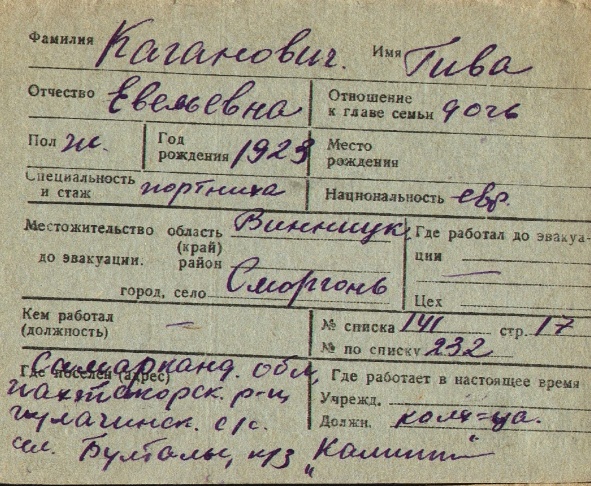 Фамилия Каганович. Имя Гива
Отчество Евельевна Отношение к главе семьи дочь
Пол ж. Год рождения 1923 Место рождения
Специальность и стаж портниха Национальность евр.
Местожительство область (край) Винницк. Где работал до эвакуа-
до эвакуации. район ции —
город, село Сморгонь Цех
Кем работал (должность) — № списка 141 стр. 17
№ по списку 232
Где поселен (адрес) Самарканд. обл, Где работает в настоящее время
Пахтакорск. р-н Учрежд.
с/с. Должн. колх-ца.
сел. к/з "